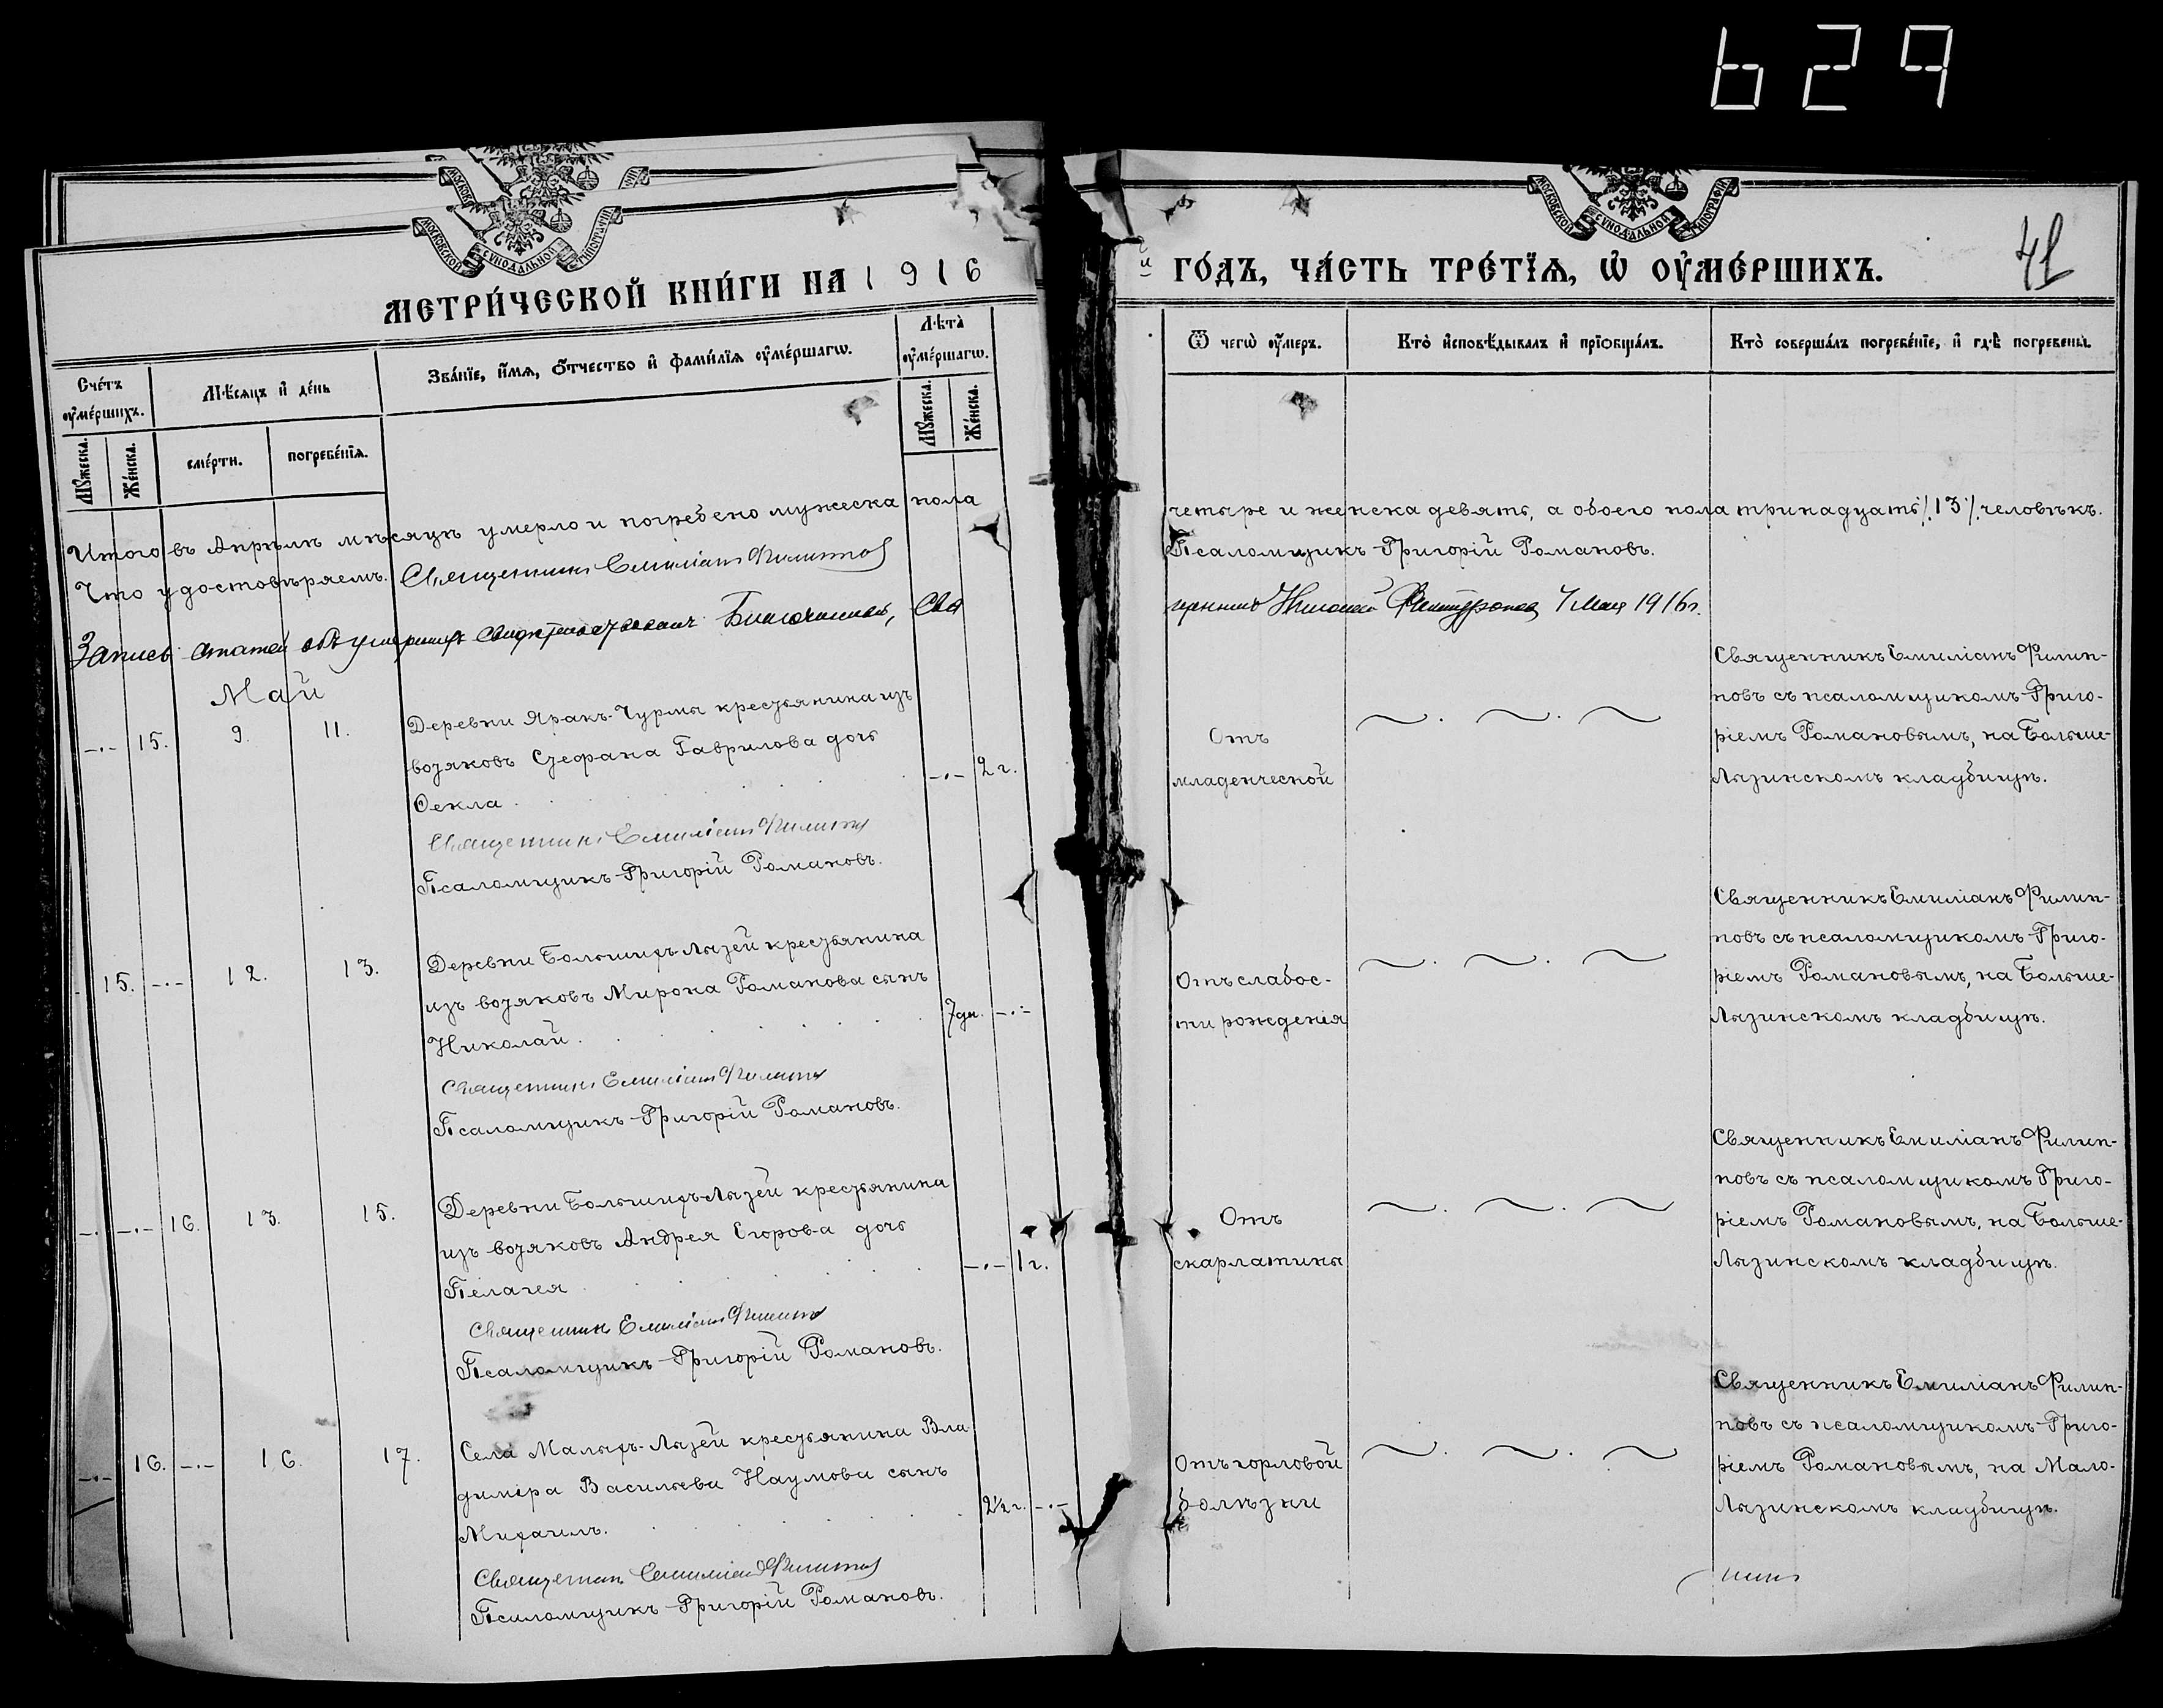 629
МОСКОВСКОЙ СѴНОДАЛЬНОЙ ТИПОГРАФІИ
МОСКОВСКОЙ СѴНОДАЛЬНОЙ ТИПОГРАФІИ
МЕТРИ́ЧЕСКОЙ КНИ́ГИ НА 1916
й ГО́ДЪ, ЧА́СТЬ ТРЕ́ТІѦ, Ѡ ОУ҆МЕ́РШИХЪ.
41
Сче́тъ оу҆ме́ршихъ.
Мꙋ́жеска.
Же́нска.
Мѣ́сѧцъ и҆ де́нь
сме́рти.
погребе́нїѧ.
Зва́нїе, и҆́мѧ, ѻ҆́тчество и҆ фами́лїѧ оу҆ме́ршагѡ.
Лѣта̀ оу҆ме́ршагѡ.
Мꙋ́жеска.
Же́нска.
Ѿ чегѡ̀ оу҆́меръ.
Кто̀ и҆сповѣ́дывалъ и҆ прїѡбща́лъ.
Кто̀ соверша́лъ погребе́нїе, и҆ гдѣ̀ погребены̀.
Итого въ Апрѣлѣ мѣсяцѣ умерло и погребено мужеска пола четыре и женска девять, а обоего пола тринадцать ./13/. человѣкъ.
Что удостовѣряемъ. Священникъ Емиліанъ Филипповъ Псаломщикъ Григорій Романовъ.
Запись статей объ умершихъ свидѣтельствовалъ Благочинный, Священникъ Николай 7 Мая 1916 г.
Май
-.- 15. 9. 11.
Деревни Яракъ-Чурмы крестьянина изъ
вотяковъ Стефана Гаврилова дочь
Ѳекла. -.- 2 г.
Священникъ Емиліанъ Филипповъ
Псаломщикъ Григорій Романовъ.
Отъ
младенческой
Священникъ Емиліанъ Филип-
повъ съ псаломщикомъ Григо-
ріемъ Романовымъ, на Больше-
Лызинскомъ кладбищѣ.
15. -.- 12. 13.
Деревни Большихъ-Лызей крестьянина
изъ вотяковъ Мирона Романова сынъ
Николай. 7 дн. -.-
Священникъ Емиліанъ Филипповъ
Псаломщикъ Григорій Романовъ.
Отъ слабос-
ти рожденія
Священникъ Емиліанъ Филип-
повъ съ псаломщикомъ Григо-
ріемъ Романовымъ, на Больше-
Лызинскомъ кладбищѣ.
-.- 16. 13. 15.
Деревни Большихъ-Лызей крестьянина
изъ вотяковъ Андрея Егорова дочь
Пелагея -.- 1 г.
Священникъ Емиліанъ Филипповъ
Псаломщикъ Григорій Романовъ.
Отъ
скарлатины
Священникъ Емиліанъ Филип-
повъ съ псаломщикомъ Григо-
ріемъ Романовымъ, на Больше-
Лызинскомъ кладбищѣ.
16. -.- 16. 17.
Села Малыхъ-Лызей крестьянина Вла-
диміра Васильева Наумова сынъ
Михаилъ. 2½ г. -.-
Священникъ Емиліанъ Филипповъ
Псаломщикъ Григорій Романовъ.
Отъ горловой
болѣзни
Священникъ Емиліанъ Филип-
повъ съ псаломщикомъ Григо-
ріемъ Романовымъ, на Мало-
Лызинскомъ кладбищѣ.